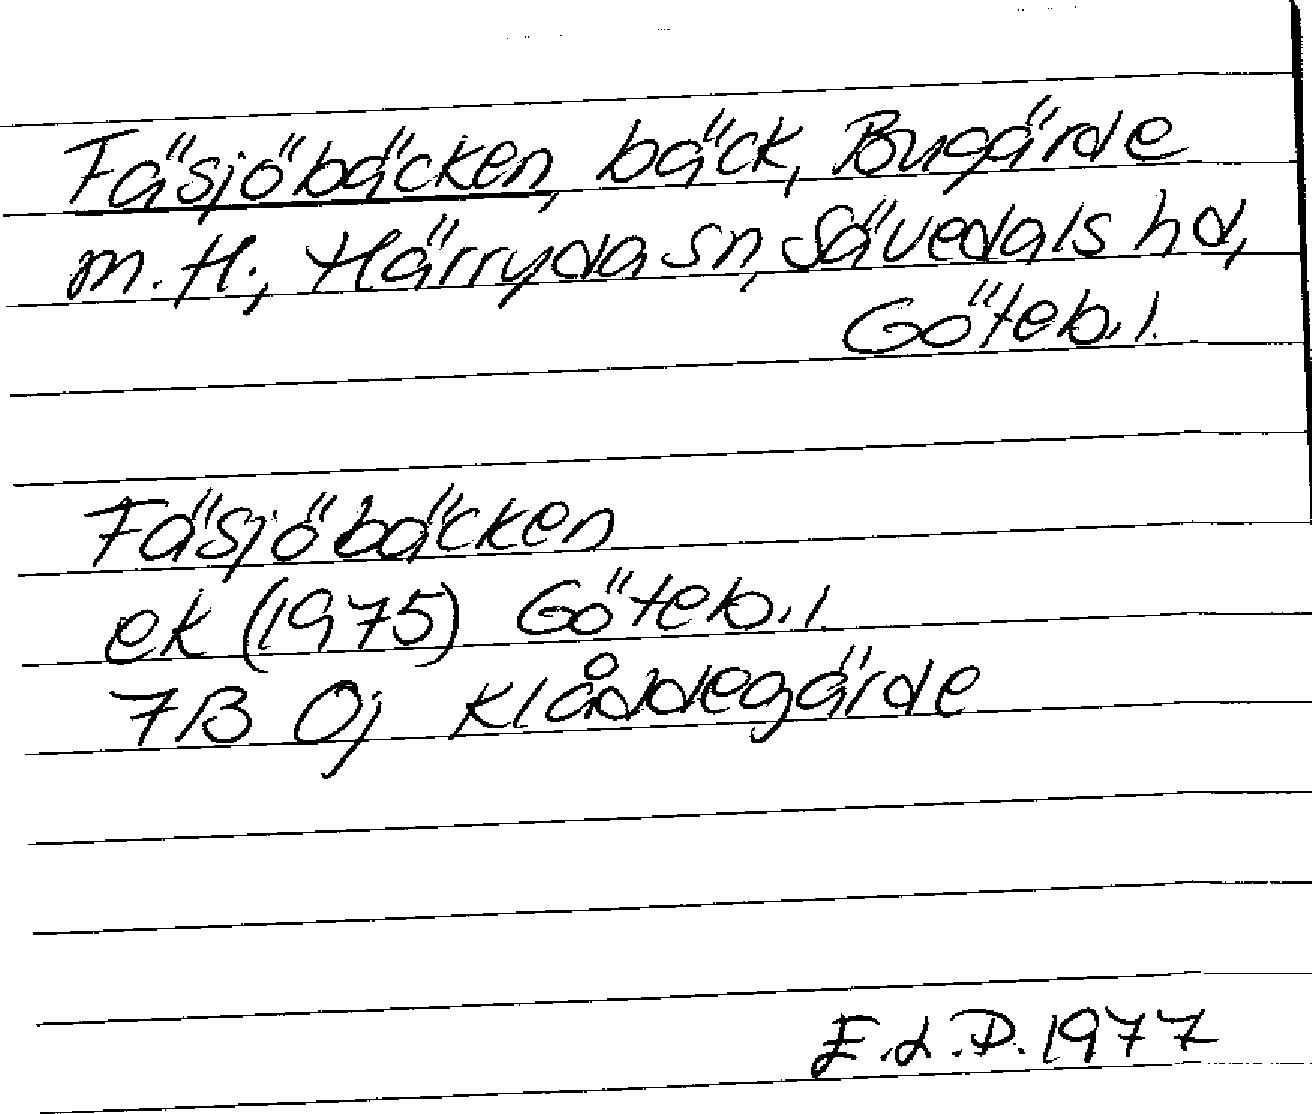 Fäsjöbäcken, bäck, Bugärde
m. fl., Härryda sn, Sävedals hd,
Göteb. l.
Fäsjöbäcken
ek (1975) Göteb. l.
7B 0j Klåddegärde
E.L.P. 1977